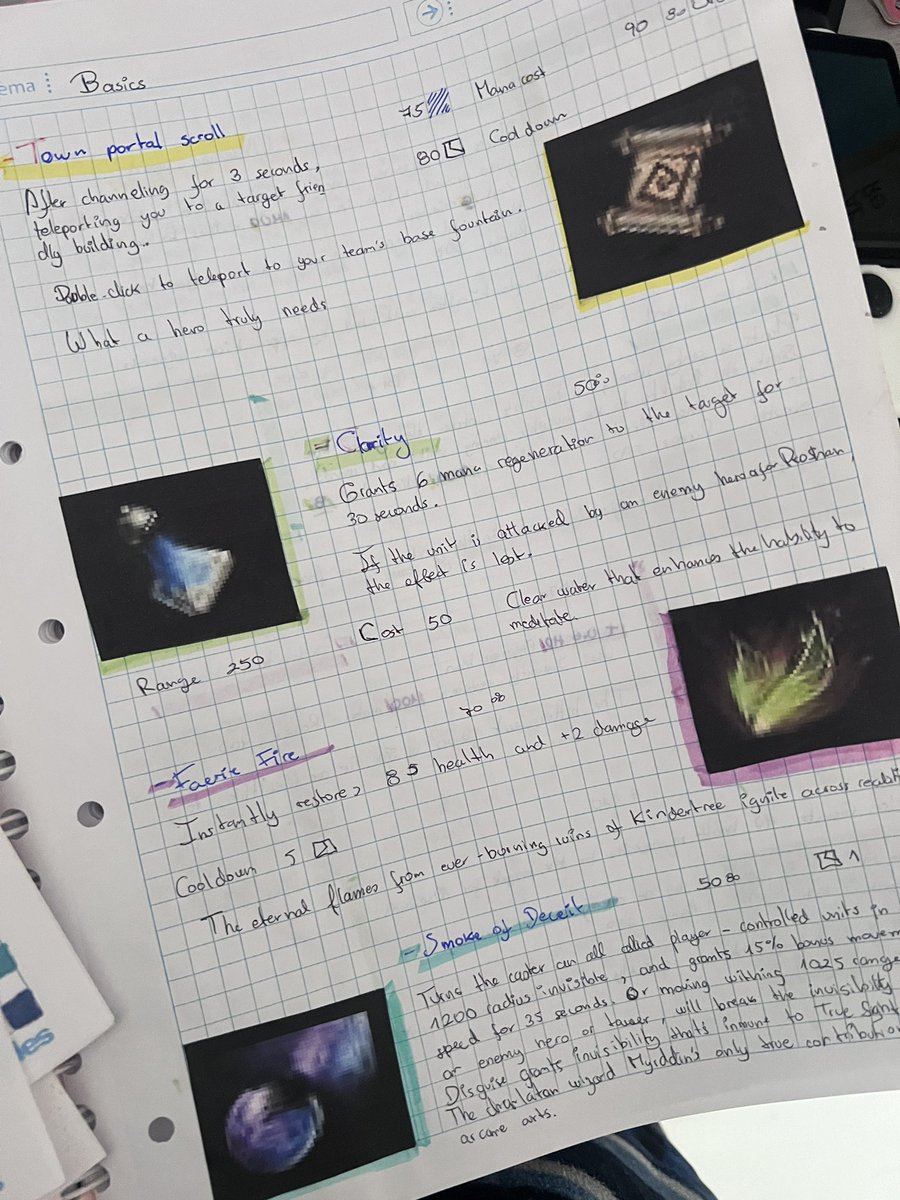 ema : Basics
90
- Town portal scroll
75 Mana cost
80 Cooldown
After channeling for 3 seconds,
teleporting you to a target frien
dly building.
Double-click to teleport to your team's base fountain.
What a hero truly needs
50
- Clarity
Grants 6 mana regeneration to the target for
30 seconds.
If the unit is attacked by an enemy hero or Roshan,
the effect is lost.
Cost 50
Clear water that enhances the hability to
meditate.
Range 250
70
- Faerie Fire
Instantly restores 85 health and +2 damage
Cooldown 5
The eternal flames from ever-burning ruins of Kindertree ignite across realiti
50
1
- Smoke of Deceit
Turns the caster an all allied player-controlled units in
1200 radius invisible, and grants 15% bonus movem
speed for 35 seconds. Or moving withing 1025 range
or enemy hero or tower, will break the invisibility
Disguise grants invisibility that's inmune to True Sight
The charlatan wizard Myrddin's only true contribution
arcane arts.
les